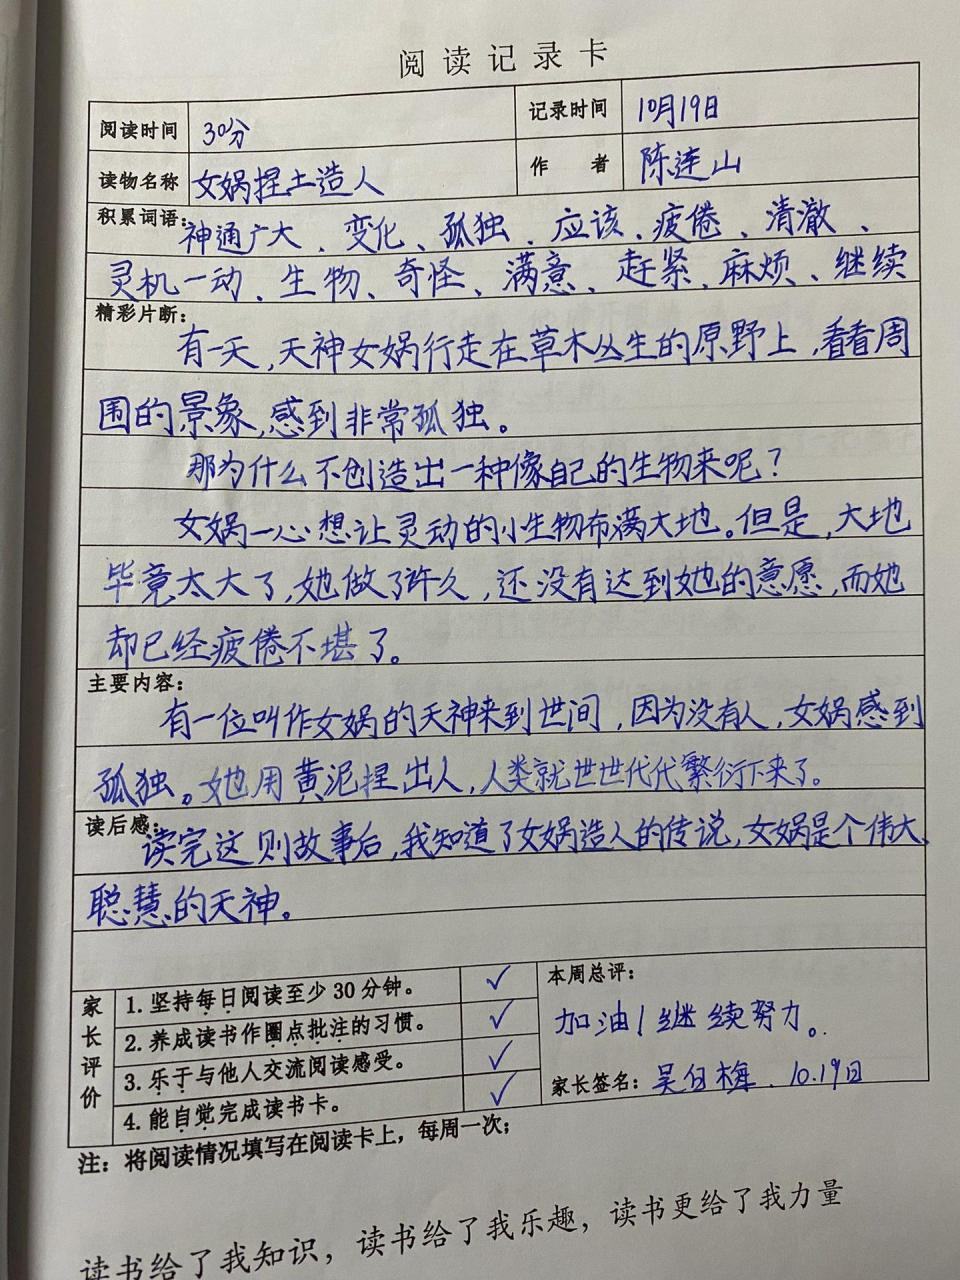 阅读记录卡
阅读时间 30分 记录时间 10月19日
读物名称 女娲捏土造人 作者 陈连山
积累词语：神通广大、变化、孤独、应该、疲倦、清澈、
灵机一动、生物、奇怪、满意、赶紧、麻烦、继续
精彩片断：
有一天，天神女娲行走在草木丛生的原野上，看看周
围的景象，感到非常孤独。
那为什么不创造出一种像自己的生物来呢？
女娲一心想让灵动的小生物布满大地。但是，大地
毕竟太大了，她做了许久，还没有达到她的意愿，而她
却已经疲倦不堪了。
主要内容：
有一位叫作女娲的天神来到世间，因为没有人，女娲感到
孤独。她用黄泥捏出人，人类就世世代代繁衍下来了。
读后感：
读完这则故事后，我知道了女娲造人的传说，女娲是个伟大、
聪慧的天神。
家长评价
1. 坚持每日阅读至少 30 分钟。 ✓
2. 养成读书作圈点批注的习惯。 ✓
3. 乐于与他人交流阅读感受。 ✓
4. 能自觉完成读书卡。 ✓
本周总评：
加油！继续努力。
家长签名：吴 梅 10.19日
注：将阅读情况填写在阅读卡上，每周一次；
读书给了我知识，读书给了我乐趣，读书更给了我力量